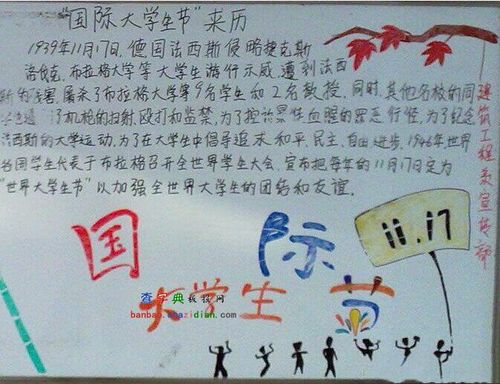 “国际大学生节”来历
1939年11月17日,德国法西斯侵略捷克斯
洛伐克,布拉格大学等大学生游行示威,遭到法西
斯的残害,屠杀了布拉格大学等9名学生和2名教授,同时,其他名校的同
学也遭了机枪的扫射,殴打和监禁,为了控诉黑性血腥的罪恶行性,为了纪念
法西斯的大学运动,为了在大学生中倡导追求和平,民主,自由,进步,1946年世界
各国学生代表于布拉格召开全世界学生大会,宣布把每年的11月17日定为
“世界大学生节”以加强全世界大学生的团结和友谊.
建筑工程系宣传部
国际
11.17
大学生节
查字典板报网
banbao.chazidian.com